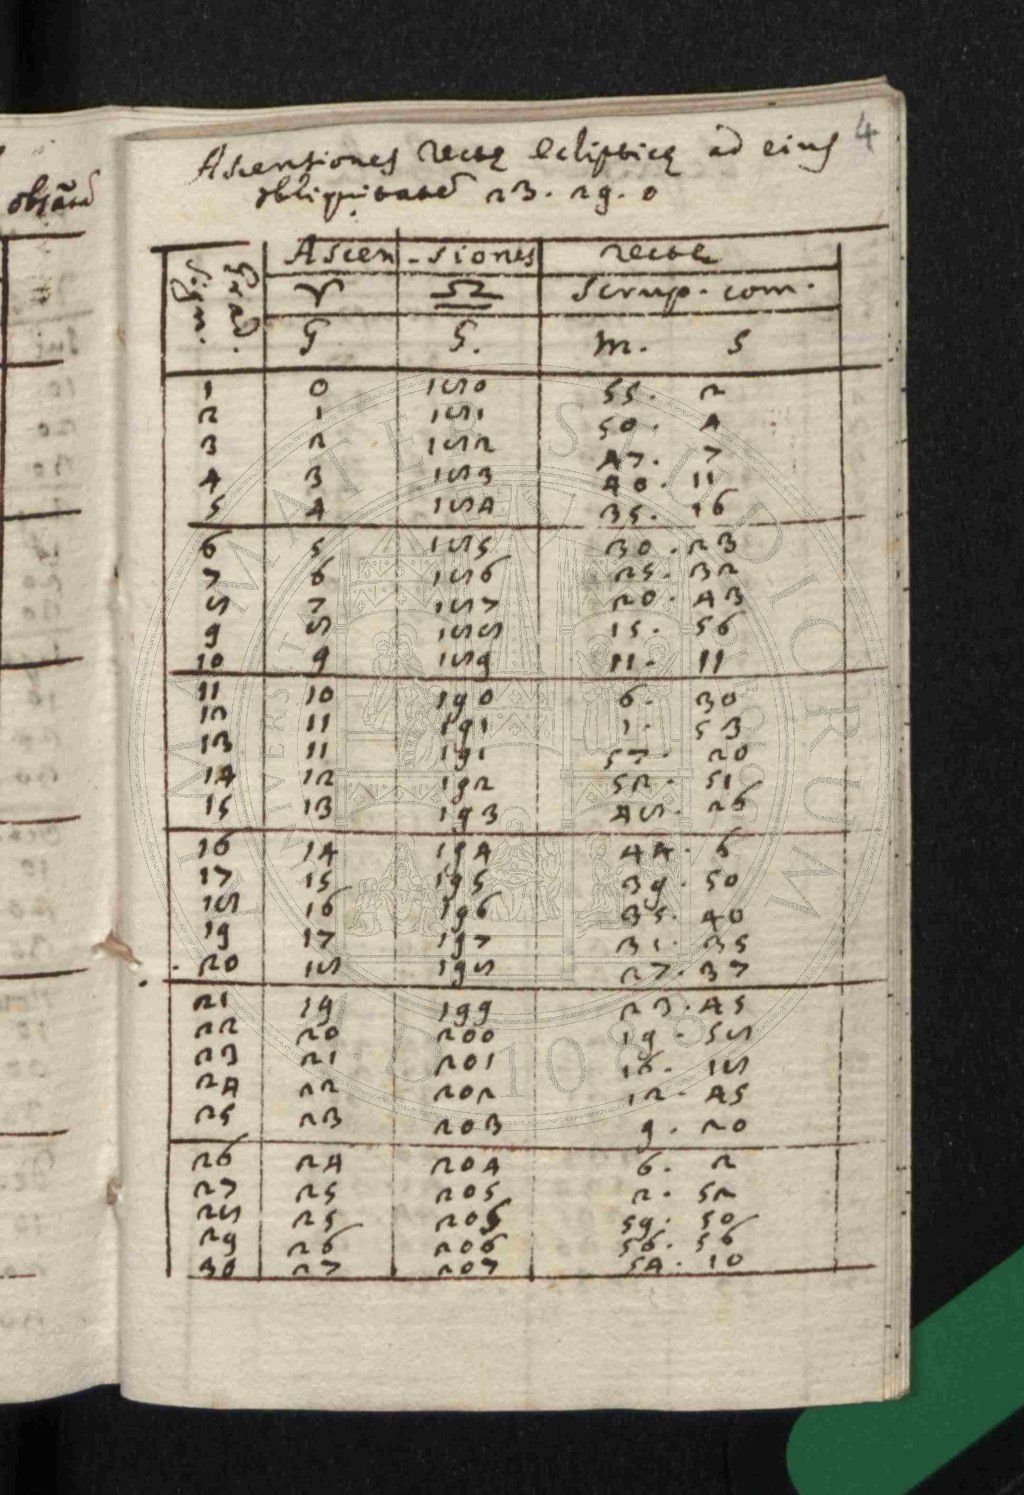 4
Ascensiones rectę eclipticę ad eius
obliquitatẽ 23. 29. 0
Ascen-siones rectæ
Grad. Sign. ♈ ♎ Scrup. com.
G G. m. S
1 0 180 55. 2
2 1 181 50. 4
3 2 182 47. 7
4 3 183 40. 11
5 4 184 35. 16
6 5 185 30. 23
7 6 186 25. 32
8 7 187 20. 43
9 8 188 15. 56
10 9 189 11. 11
11 10 190 6. 30
12 11 191 1. 53
13 11 191 57. 20
14 12 192 52. 51
15 13 193 48. 26
16 14 194 44. 6
17 15 195 39. 50
18 16 196 35. 40
19 17 197 31. 35
20 18 198 27. 37
21 19 199 23. 45
22 20 200 19. 58
23 21 201 16. 18
24 22 202 12. 45
25 23 203 9. 20
26 24 204 6. 2
27 25 205 2. 52
28 25 205 59. 50
29 26 206 56. 56
30 27 207 54. 10
ALMA MATER STUDIORUM
A.D. 1088